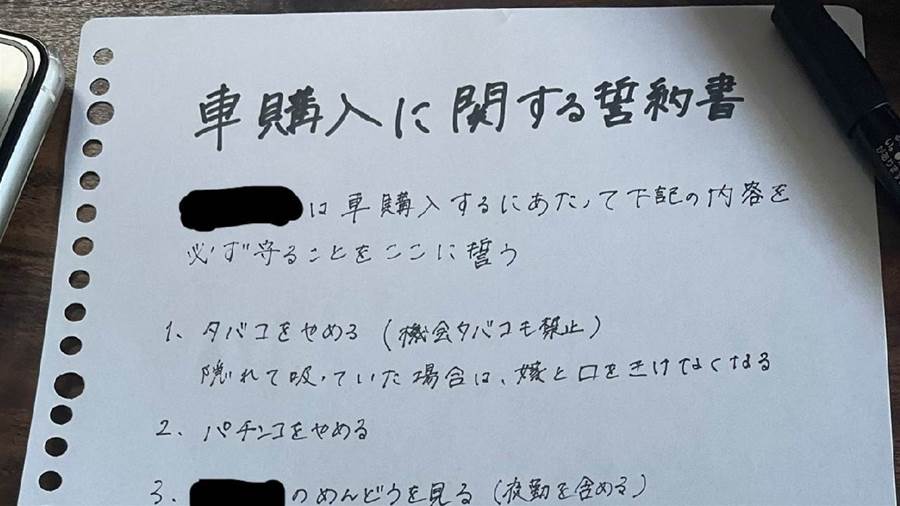 車購入に関する誓約書
は車購入するにあたって下記の内容を
必ず守ることをここに誓う
1、タバコをやめる（機会タバコも禁止）
隠れて吸っていた場合は、嫁と口をきけなくなる
2、パチンコをやめる
3、のめんどうを見る（夜勤を含める）